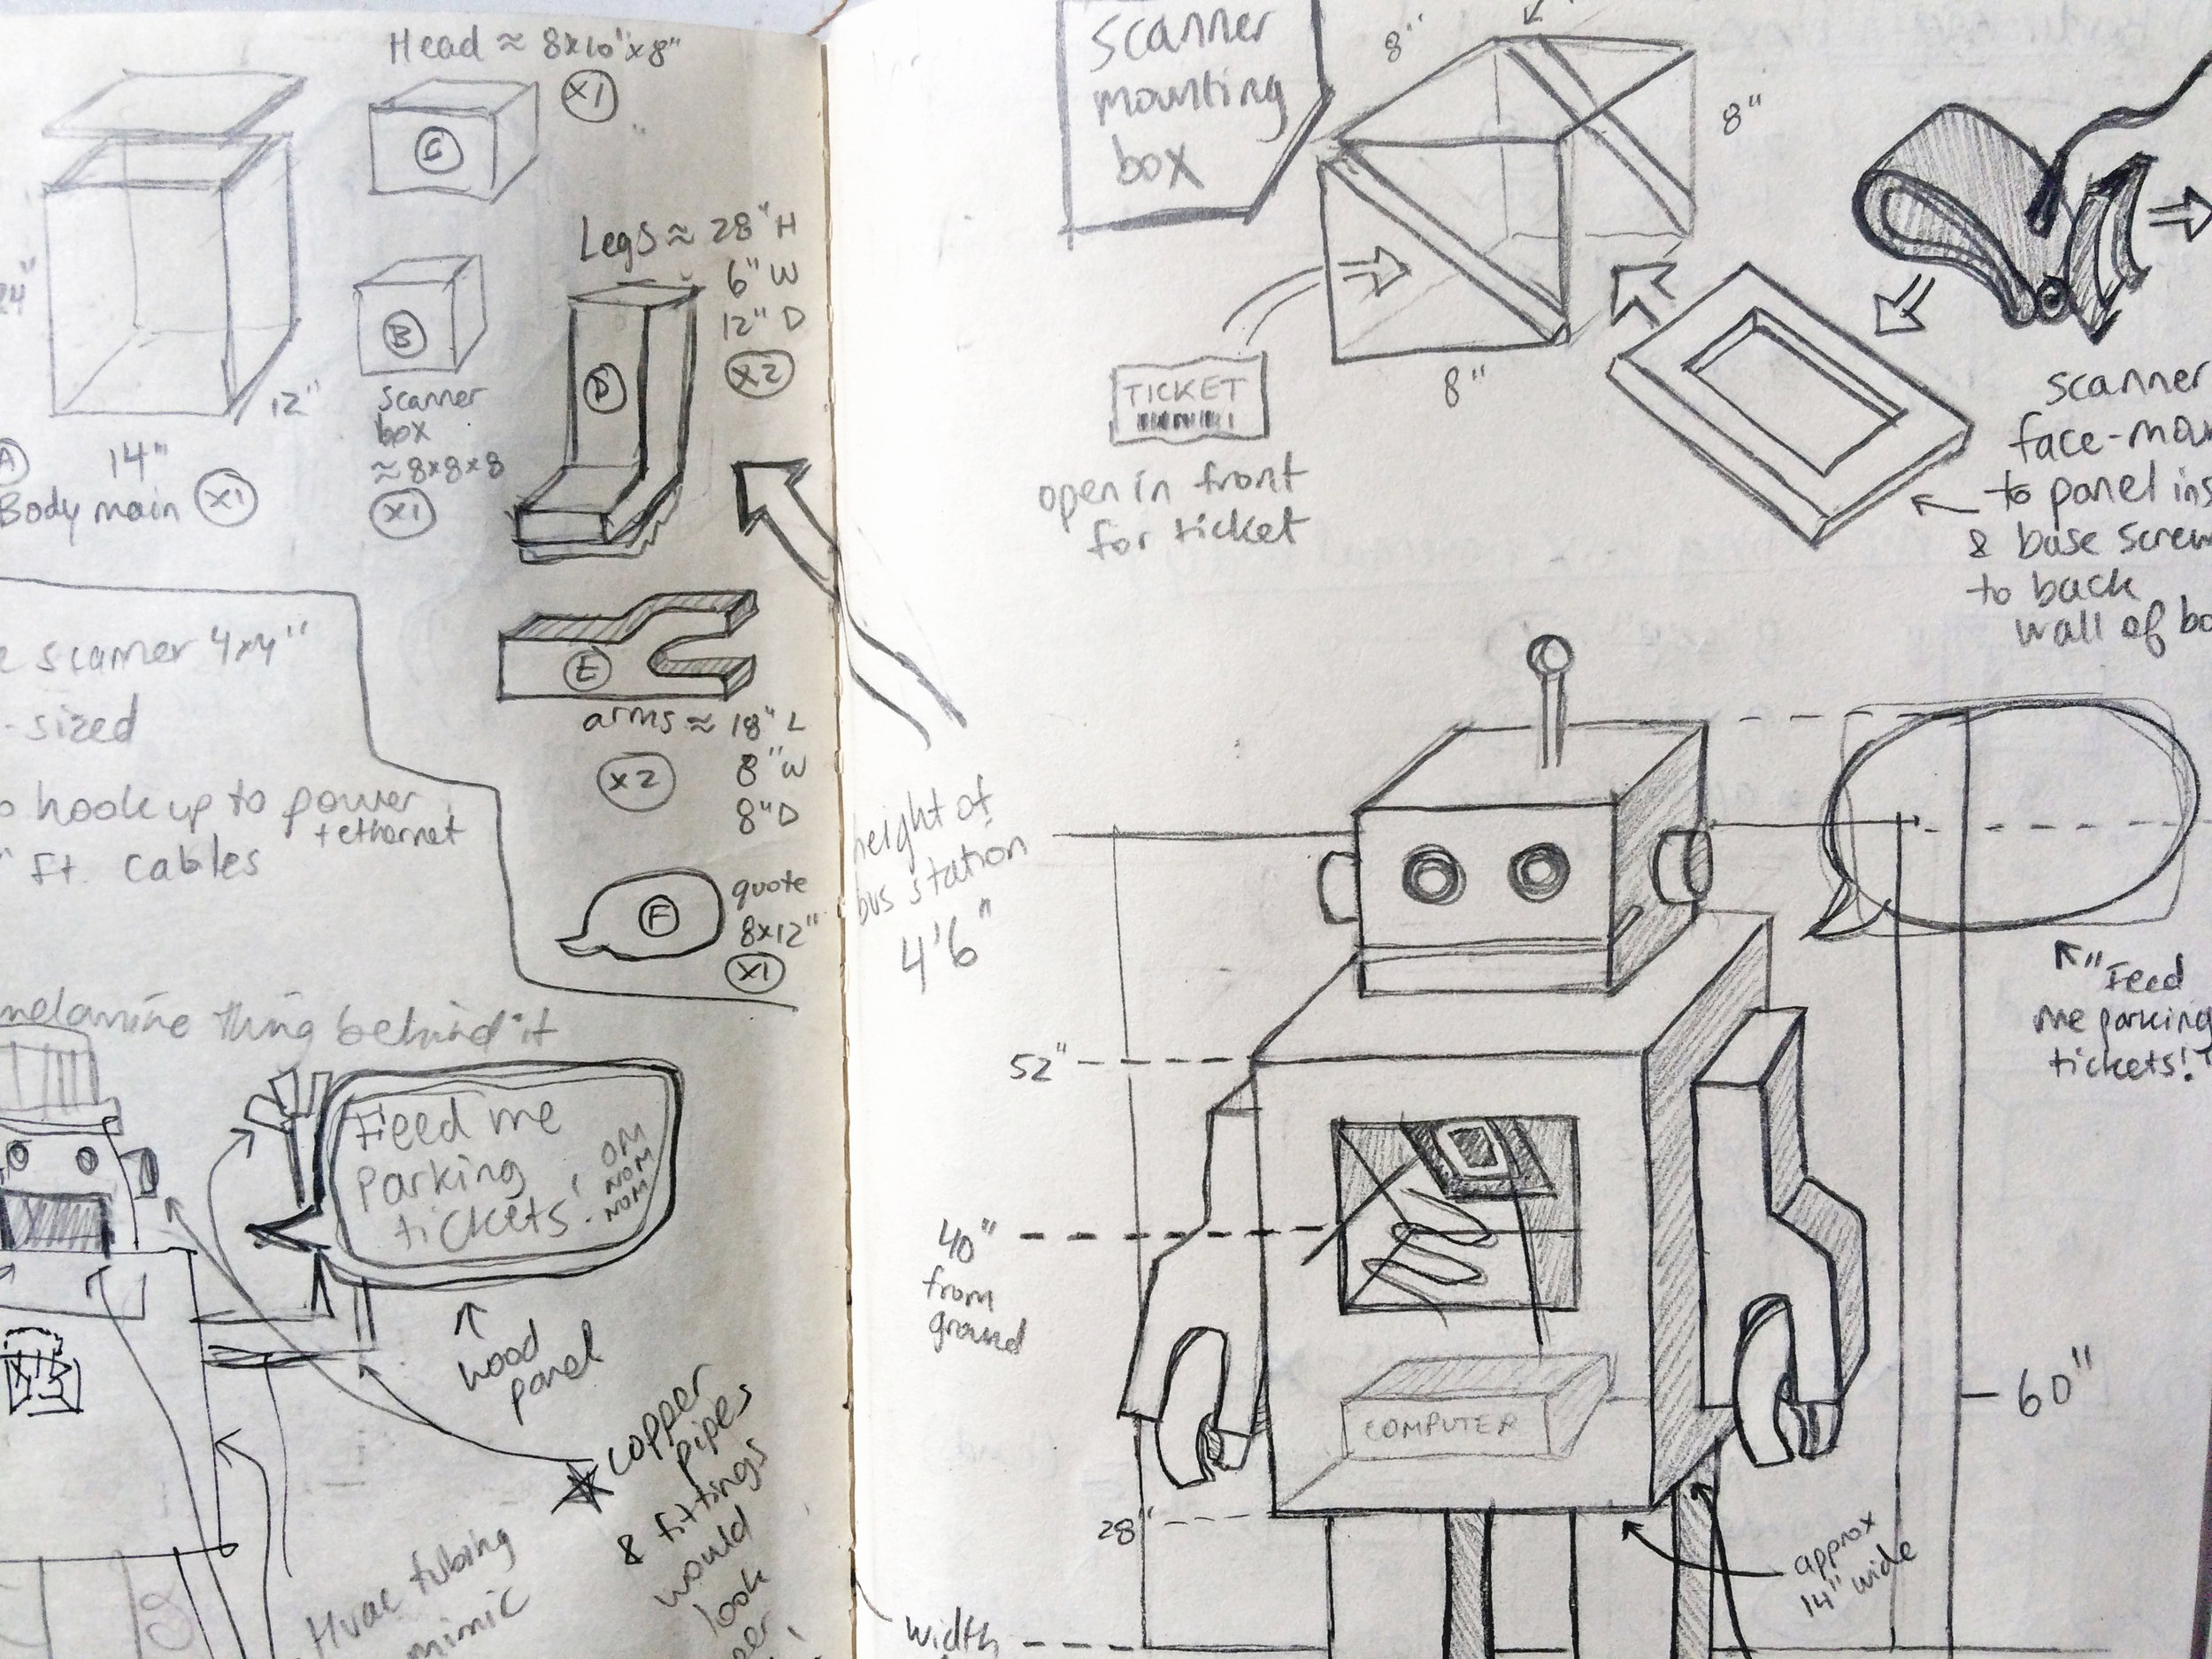 Head ≈ 8x10"x8"
x1
C
24"
12"
14"
A
Body main x1
B
scanner
box
≈ 8x8x8
x1
Legs ≈ 28"H
6"W
12"D
x2
D
E
arms ≈ 18"L
8"W
8"D
x2
F
quote
8x12"
x1
scanner 4x4"
-sized
hook up to power
+ ethernet
ft. cables
melamine thing behind it
Feed me
parking
tickets!
OM
NOM
NOM
wood
panel
copper
pipes
& fittings
would
look
Hvac tubing
mimic
scanner
mounting
box
8"
8"
8"
TICKET
open in front
for ticket
scanner
to panel
& base screw
to back
wall of
height of
bus station
4'6"
"Feed
me parking
tickets!"
52"
40"
from
ground
COMPUTER
60"
28"
approx
14" wide
width